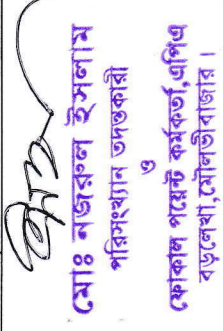 মোঃ নজরুল ইসলাম
পরিসংখ্যান তদন্তকারী
ও
ফোকাল পয়েন্ট কর্মকর্তা,এপিএ
বড়লেখা,মৌলভীবাজার।